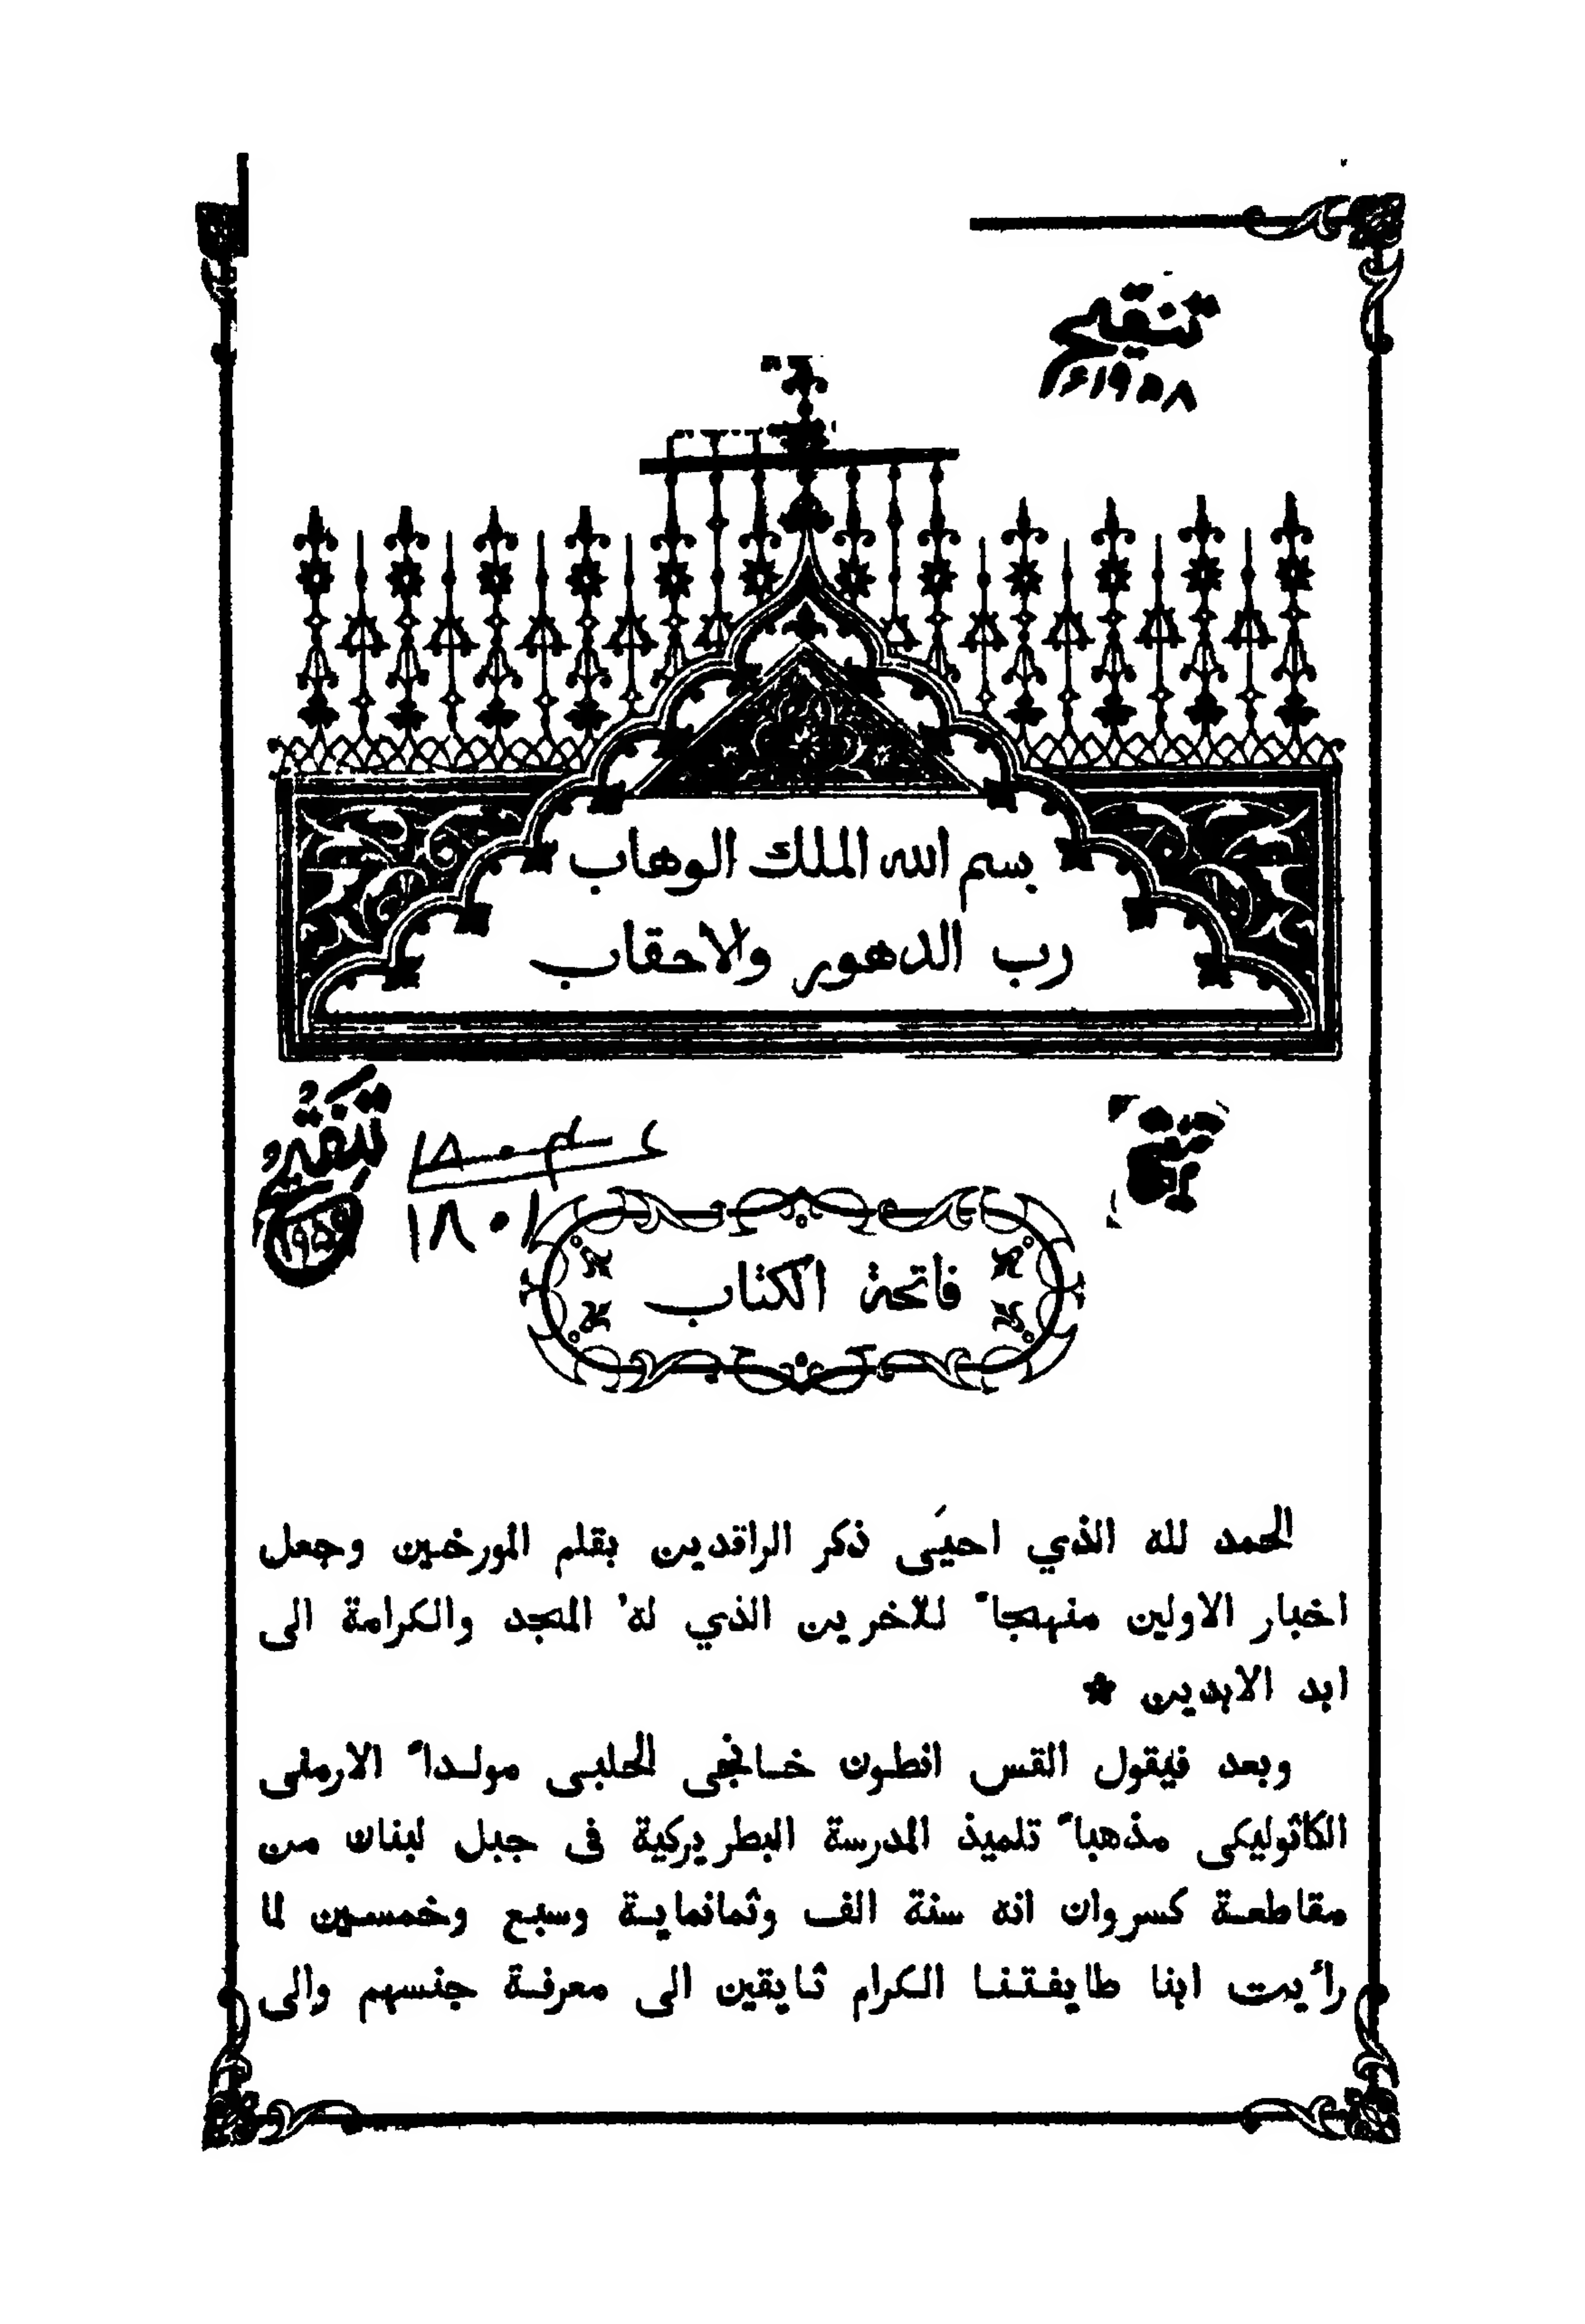 تنقيح
١٩٥٨ء
بسم الله الملك الوهاب
رب الدهور والاحقاب
١٨٠١
فاتحة الكتاب
الحمد لله الذي احيَى ذكر الراقدين بقلم المورخين وجعل
اخبار الاولين منهجاً للآخرين الذي لهُ المجد والكرامة الى
ابد الابدين *
وبعد فيقول القس انطون خانجى الحلبى مولداً الارمنى
الكاثوليكى مذهباً تلميذ المدرسة البطريركية فى جبل لبنان من
مقاطعة كسروان انه سنة الف وثمانماية وسبع وخمسين لما
رأيت ابنا طايفتنا الكرام ثايقين الى معرفة جنسهم والى